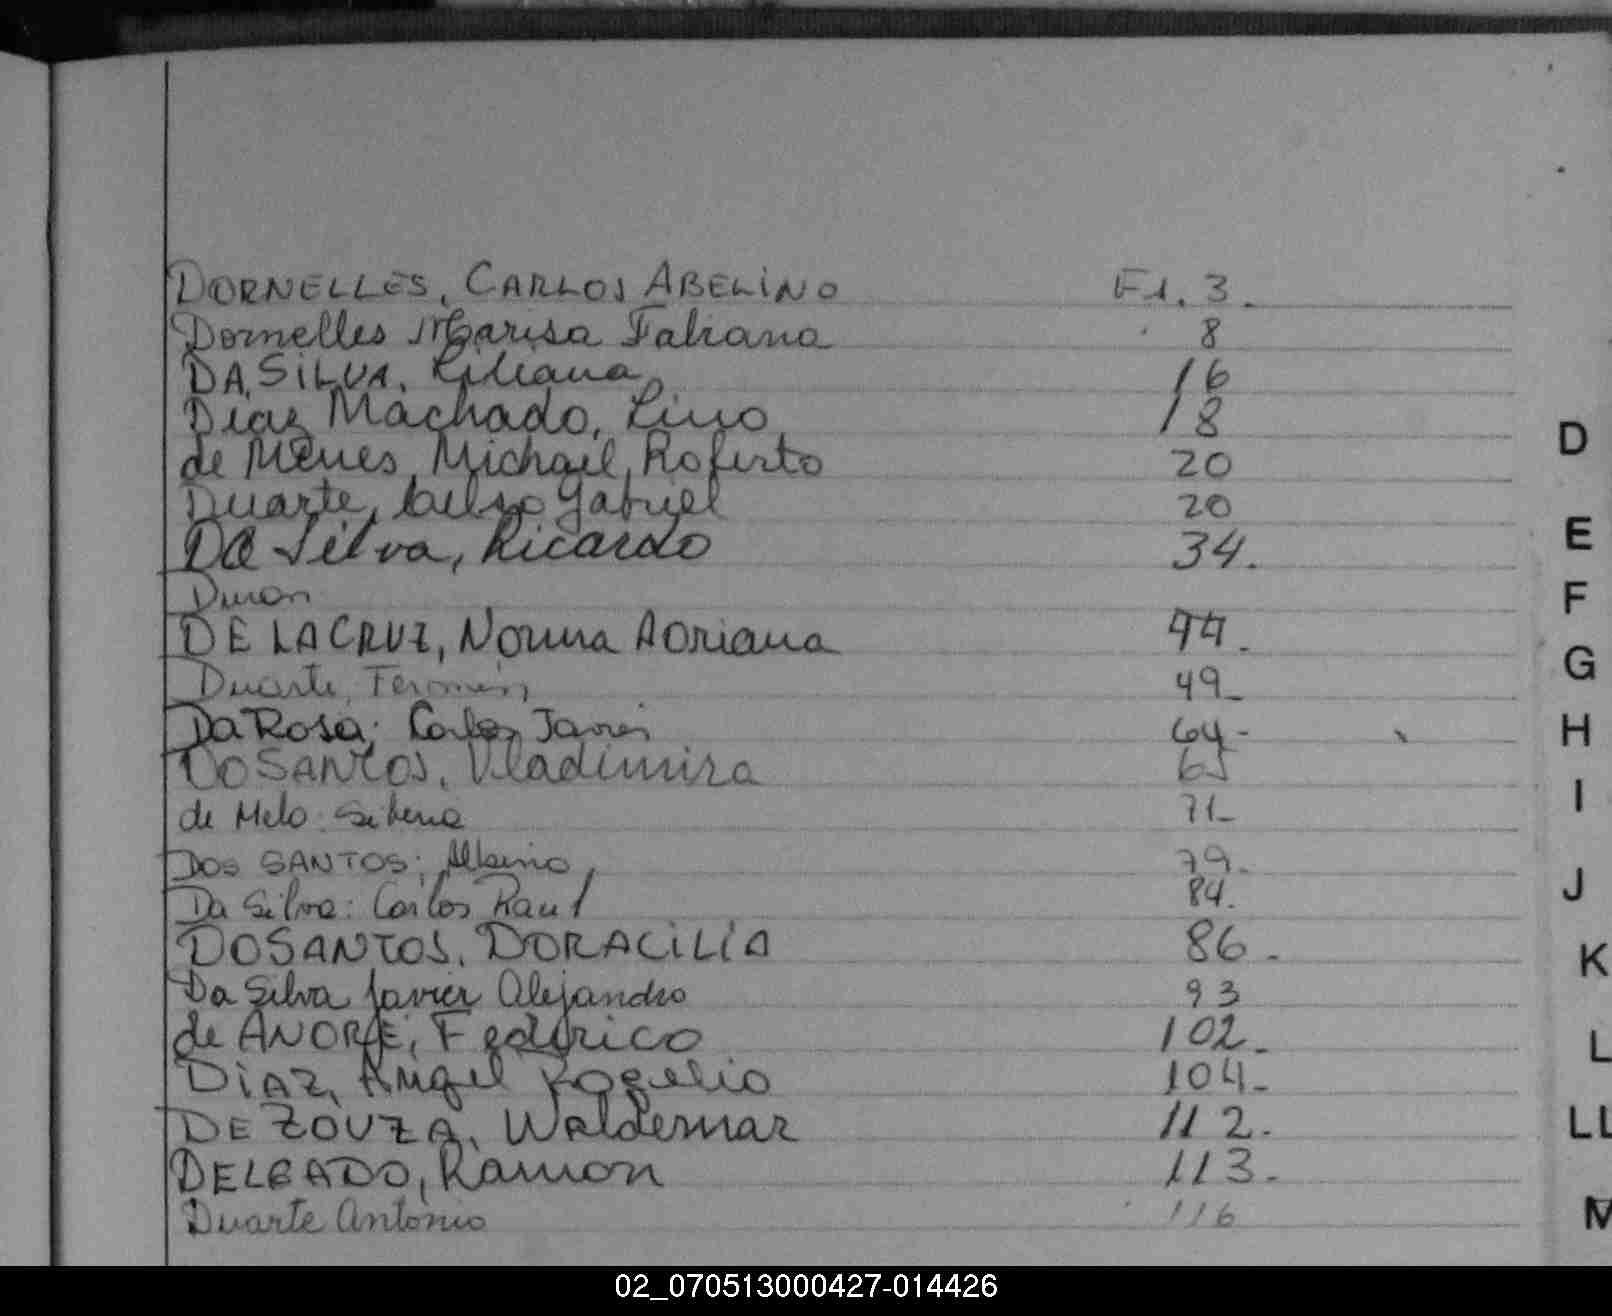 DORNELLES, CARLOS ABELINO Fl. 3.
Dornelles Marisa Fabiana 8
DA SILVA, Liliana 16
Diaz Machado, Lino 18
de Menes, Michael, Roberto 20
Duarte, Celso Gabriel 20
Da Silva, Ricardo 34.
Duran
DE LA CRUZ, Norma Adriana 44.
Duarte, Fermin 49_
Da Rosa; Carlos Javier 64-
DOSANTOS, Vladimira 65
de Melo: 71_
DOS SANTOS; Albino 79.
Da Silva: Carlos Raul 84.
DOSANTOS, DORACILIA 86.
Da Silva Javier Alejandro 93
de ANDRE, Federico 102_
DIAZ, Angel Rogelio 104_
DE ZOUZA, Waldemar 112.
DELGADO, Ramon 113.
Duarte Antonio 116
D
E
F
G
H
I
J
K
L
LL
M
02_070513000427-014426